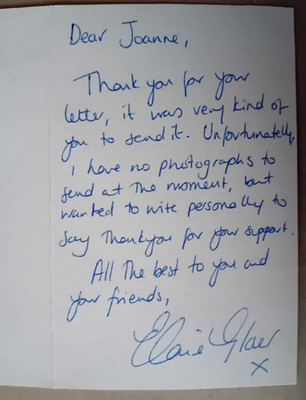 Dear Joanne,
Thank you for your
letter, it was very kind of
you to send it. Unfortunately,
I have no photographs to
send at the moment, but
wanted to write personally to
say Thankyou for your support.
All the best to you and
your friends,
x